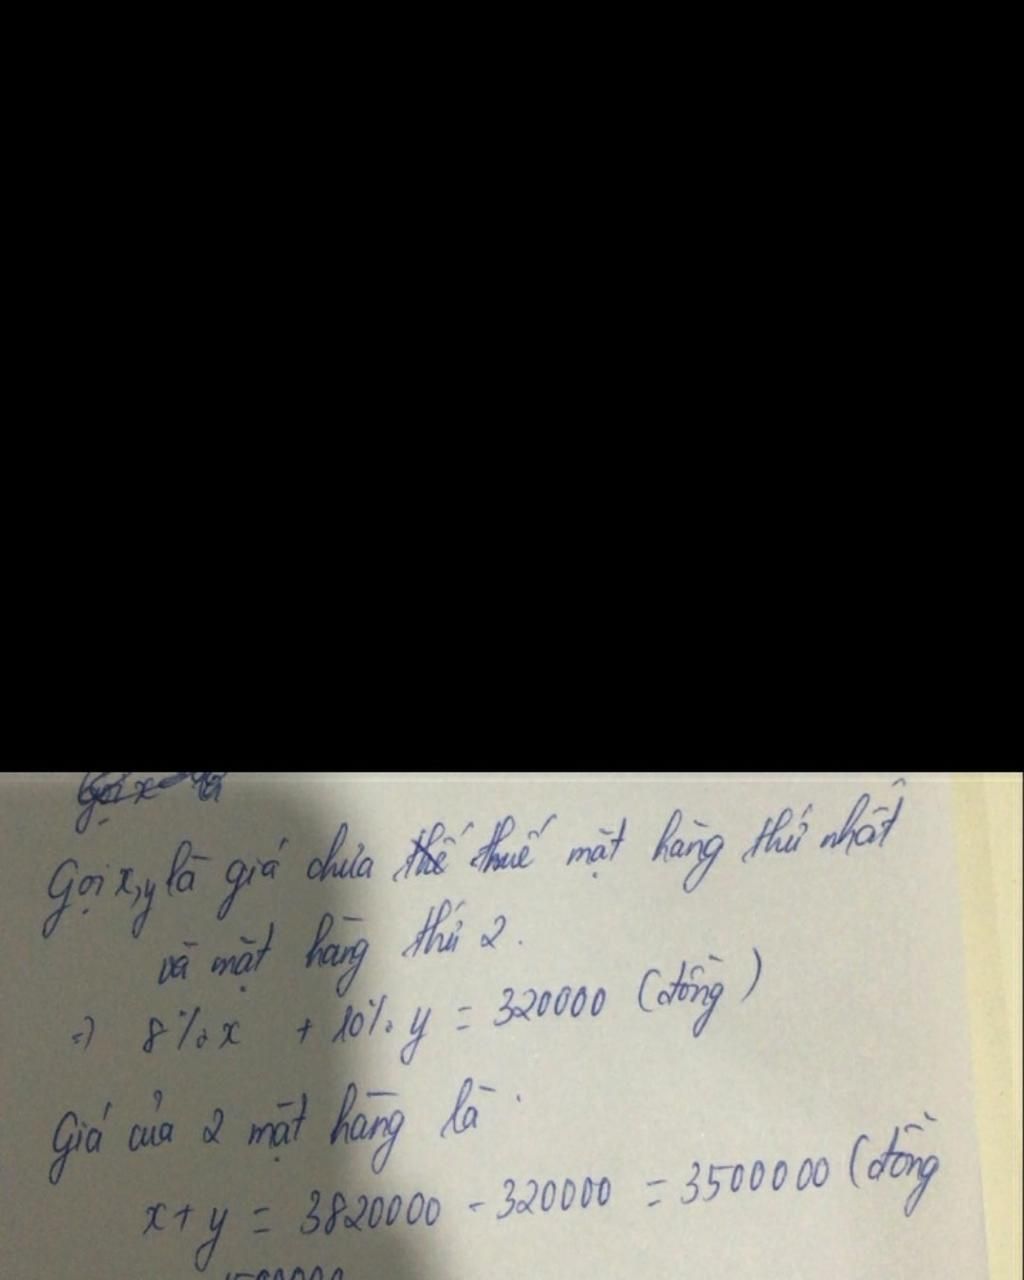 Gọi x,y là giá chưa thuế mặt hàng thứ nhất
và mặt hàng thứ 2.
=> 8%x + 10%y = 320000 (đồng)
Giá của 2 mặt hàng là
x+y = 3820000 - 320000 = 3500000 (đồng